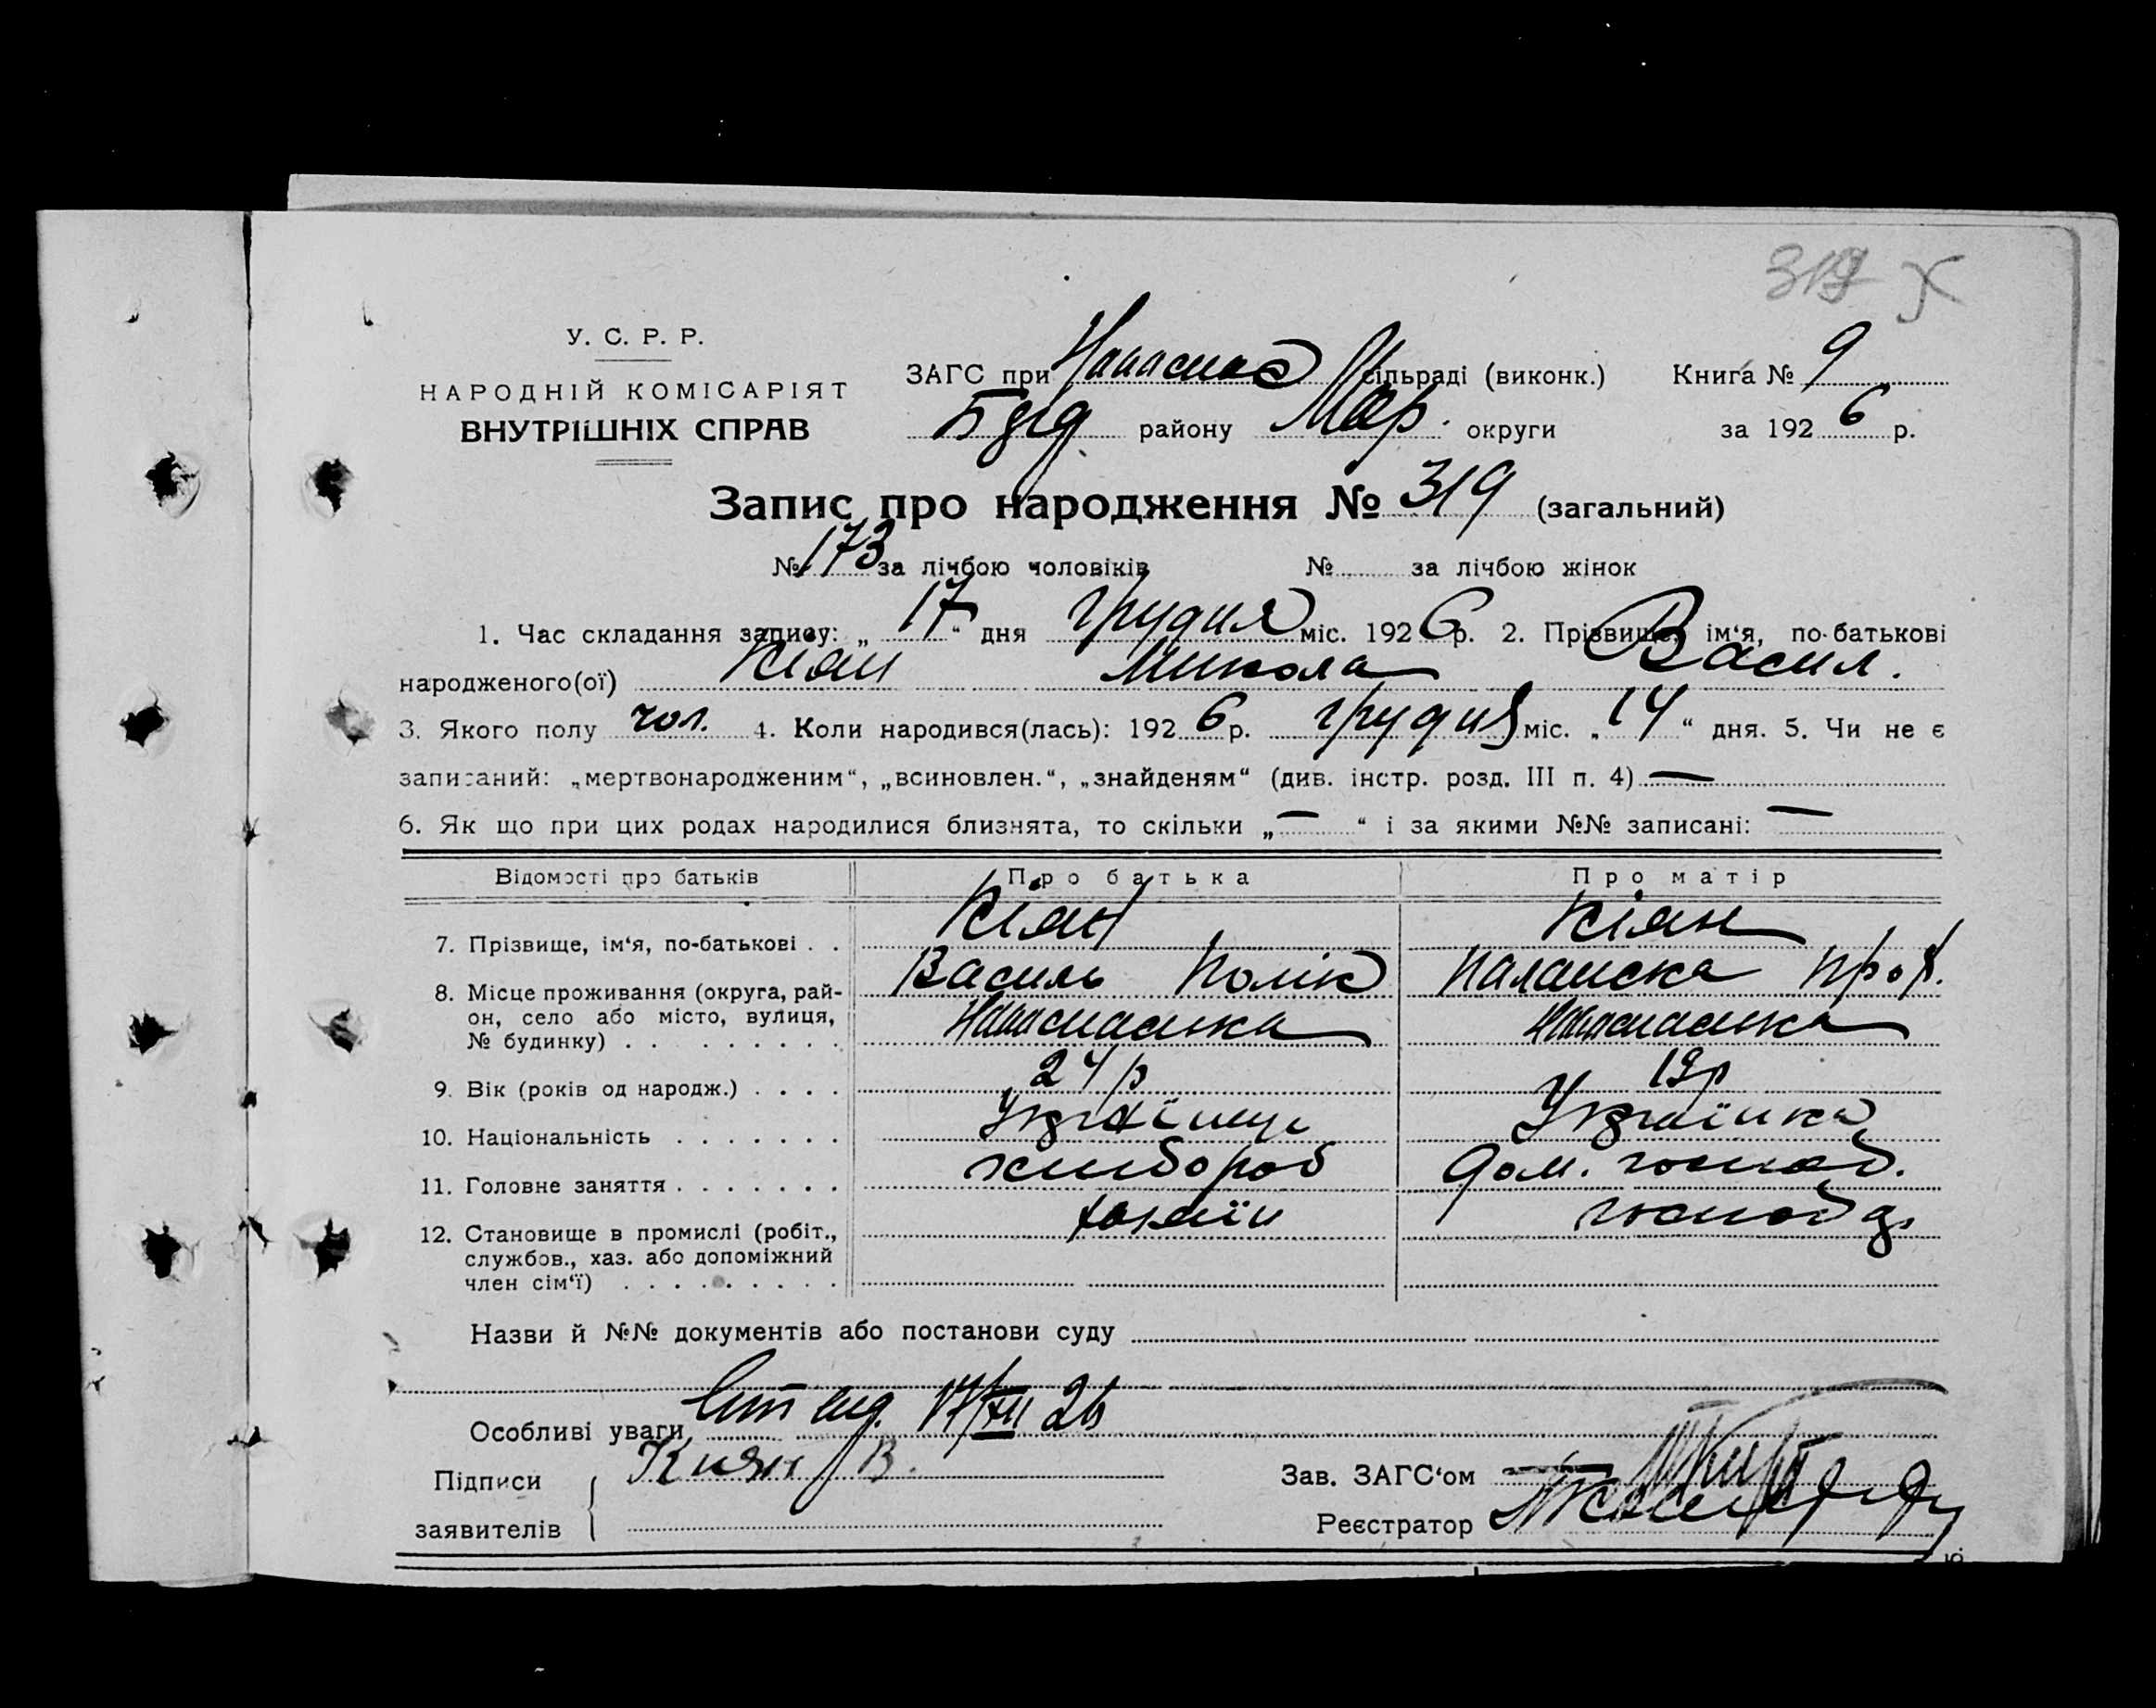 319
У. С. Р. Р.
НАРОДНІЙ КОМІСАРІЯТ
ВНУТРІШНІХ СПРАВ
ЗАГС при сільраді (виконк.) Книга № 9
району Мар. округи за 1926 р.
Запис про народження № 319 (загальний)
№ 173 за лічбою чоловіків № за лічбою жінок
1. Час складання запису: „17“ дня грудня міс. 1926 р. 2. Прізвище, ім‘я, по-батькові
народженого(ої) Кіян Микола Васил.
3. Якого полу чол. 4. Коли народився(лась): 1926 р. грудня міс. „14“ дня. 5. Чи не є
записаний: „мертвонародженим“, „всиновлен.“, „знайденям“ (див. інстр. розд. III п. 4) —
6. Як що при цих родах народилися близнята, то скільки „—“ і за якими №№ записані: —
Відомості про батьків Про батька Про матір
7. Прізвище, ім‘я, по-батькові . . Кіян Кіян
Василь Полік Палажка Проф.
8. Місце проживання (округа, рай-
он, село або місто, вулиця,
№ будинку)
9. Вік (років од народж.) . . . . 24 р 19 р
10. Національність Українець Українка
11. Головне заняття хлибороб дом. господ.
12. Становище в промислі (робіт., хазяїн господ.
службов., хаз. або допоміжний
член сім‘ї)
Назви й №№ документів або постанови суду
Особливі уваги 17/XII 26
Підписи Киян В.
заявителів
Зав. ЗАГС‘ом
Реєстратор